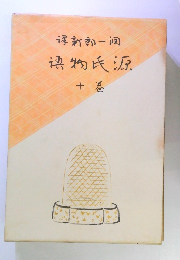 潤一郎新譯
源氏物語
卷十